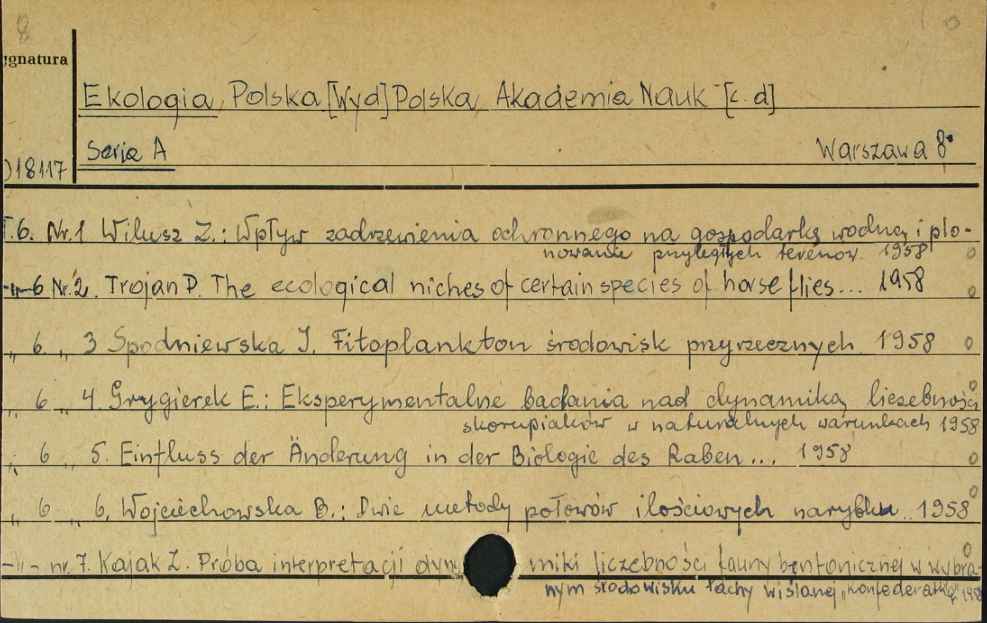 ygnatura
Ekologia Polska [Wyd] Polska Akademia Nauk [c.d]
Serja A Warszawa 8°
)18117
T.6. Nr.1 Wilusz Z.: Wpływ zadrzewienia ochronnego na gospodarkę wodną i plo-
nowanie przyległych terenów. 1958
-„-6 Nr.2. Trojan P. The ecological niches of certain species of horse flies... 1958
„ 6 „ 3 Spodniewska I. Fitoplankton środowisk przyrzecznych 1958
„ 6 „ 4. Grygierek E.: Eksperymentalne badania nad dynamiką liczebności
skorupiaków w naturalnych warunkach 1958
„ 6 „ 5. Einfluss der Änderung in der Biologie des Raben... 1958
„ 6 „ 6. Wojciechowska B.: Dwie metody połowów ilościowych narybku.. 1958
-„- nr.7. Kajak Z. Próba interpretacji dyn miki liczebności fauny bentonicznej w wybra-
nym środowisku łachy wiślanej „konfederatka"